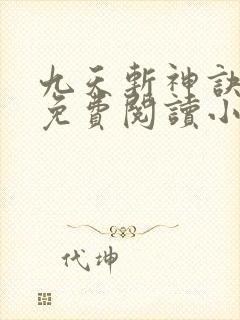 九天斬神訣
免費閱讀小
代坤